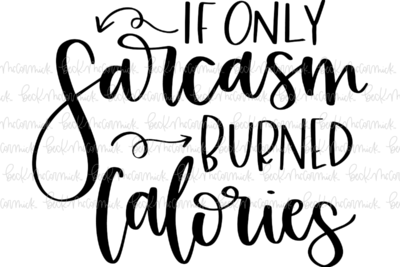 IF ONLY
Sarcasm
BURNED
Calories